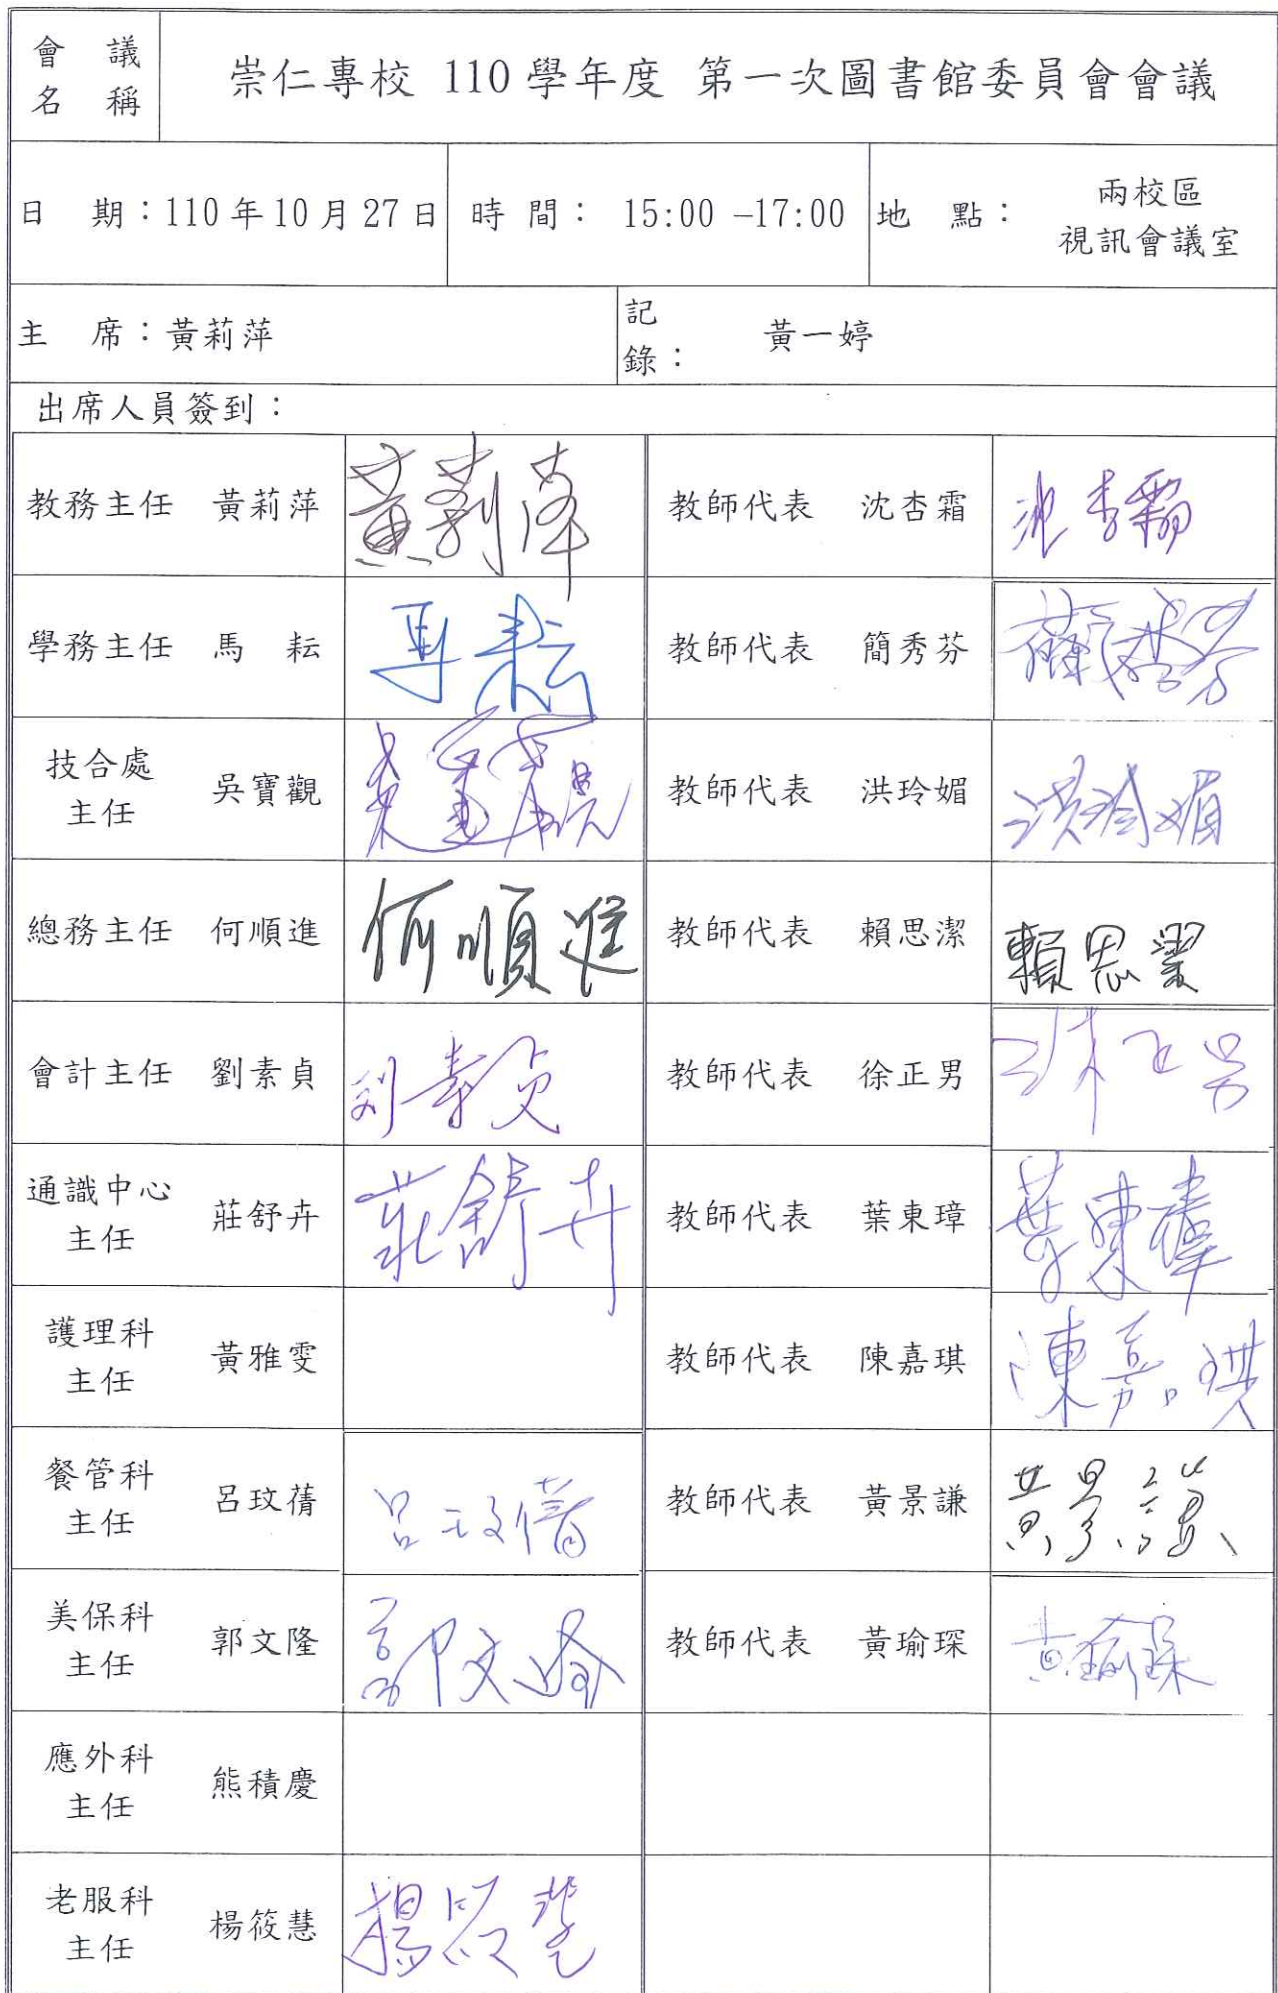 會議
名稱
崇仁專校 110 學年度 第一次圖書館委員會會議
日 期：110 年 10 月 27 日
時 間： 15:00 –17:00
地 點：
兩校區
視訊會議室
主 席：黃莉萍
記
錄：
黃一婷
出席人員簽到：
教務主任 黃莉萍 黃莉萍
教師代表 沈杏霜 沈杏霜
學務主任 馬 耘 馬耘
教師代表 簡秀芬 簡秀芬
技合處
主任
吳寶觀 吳寶觀
教師代表 洪玲媚 洪玲媚
總務主任 何順進 何順進
教師代表 賴思潔 賴思潔
會計主任 劉素貞 刘素貞
教師代表 徐正男 徐正男
通識中心
主任
莊舒卉 莊舒卉
教師代表 葉東璋 葉東璋
護理科
主任
黃雅雯
教師代表 陳嘉琪 陳嘉琪
餐管科
主任
呂玟蒨 呂玟蒨
教師代表 黃景謙 黃景謙
美保科
主任
郭文隆 郭文隆
教師代表 黃瑜琛 黃瑜琛
應外科
主任
熊積慶
老服科
主任
楊筱慧 楊筱慧